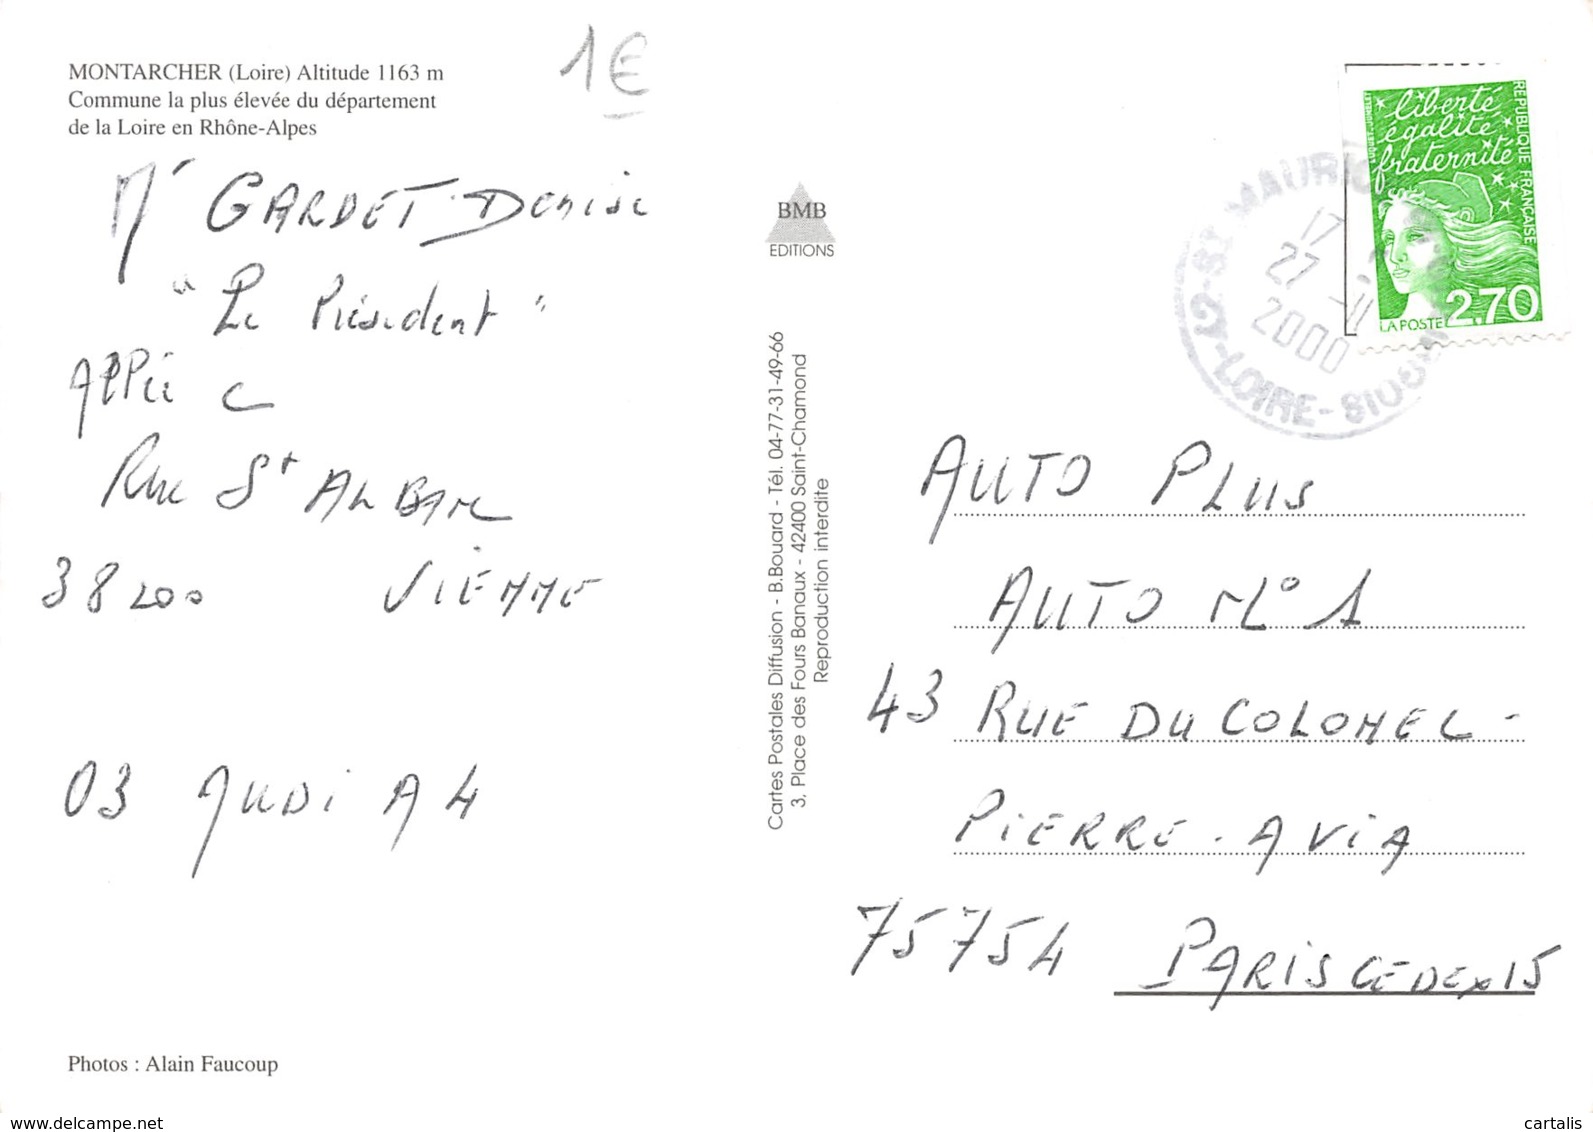 MONTARCHER (Loire) Altitude 1163 m
Commune la plus élevée du département
de la Loire en Rhône-Alpes
1€
Mr GARDET Denise
"Le Président"
Allée C
Rue St ALBAN
38200 VIENNE
03 AUDI A4
Photos : Alain Faucoup
BMB
EDITIONS
Cartes Postales Diffusion - B.Bouard - Tél. 04-77-31-49-66
3, Place des Fours Banaux - 42400 Saint-Chamond
Reproduction interdite
liberté
égalité
fraternité
REPUBLIQUE FRANÇAISE
LA POSTE 2,70
17
27 -11
2000
42-LOIRE-
AUTO PLUS
AUTO N° 1
43 RUE DU COLONEL-
PIERRE-AVIA
75754 PARIS CEDEX 15
www.delcampe.net
cartalis